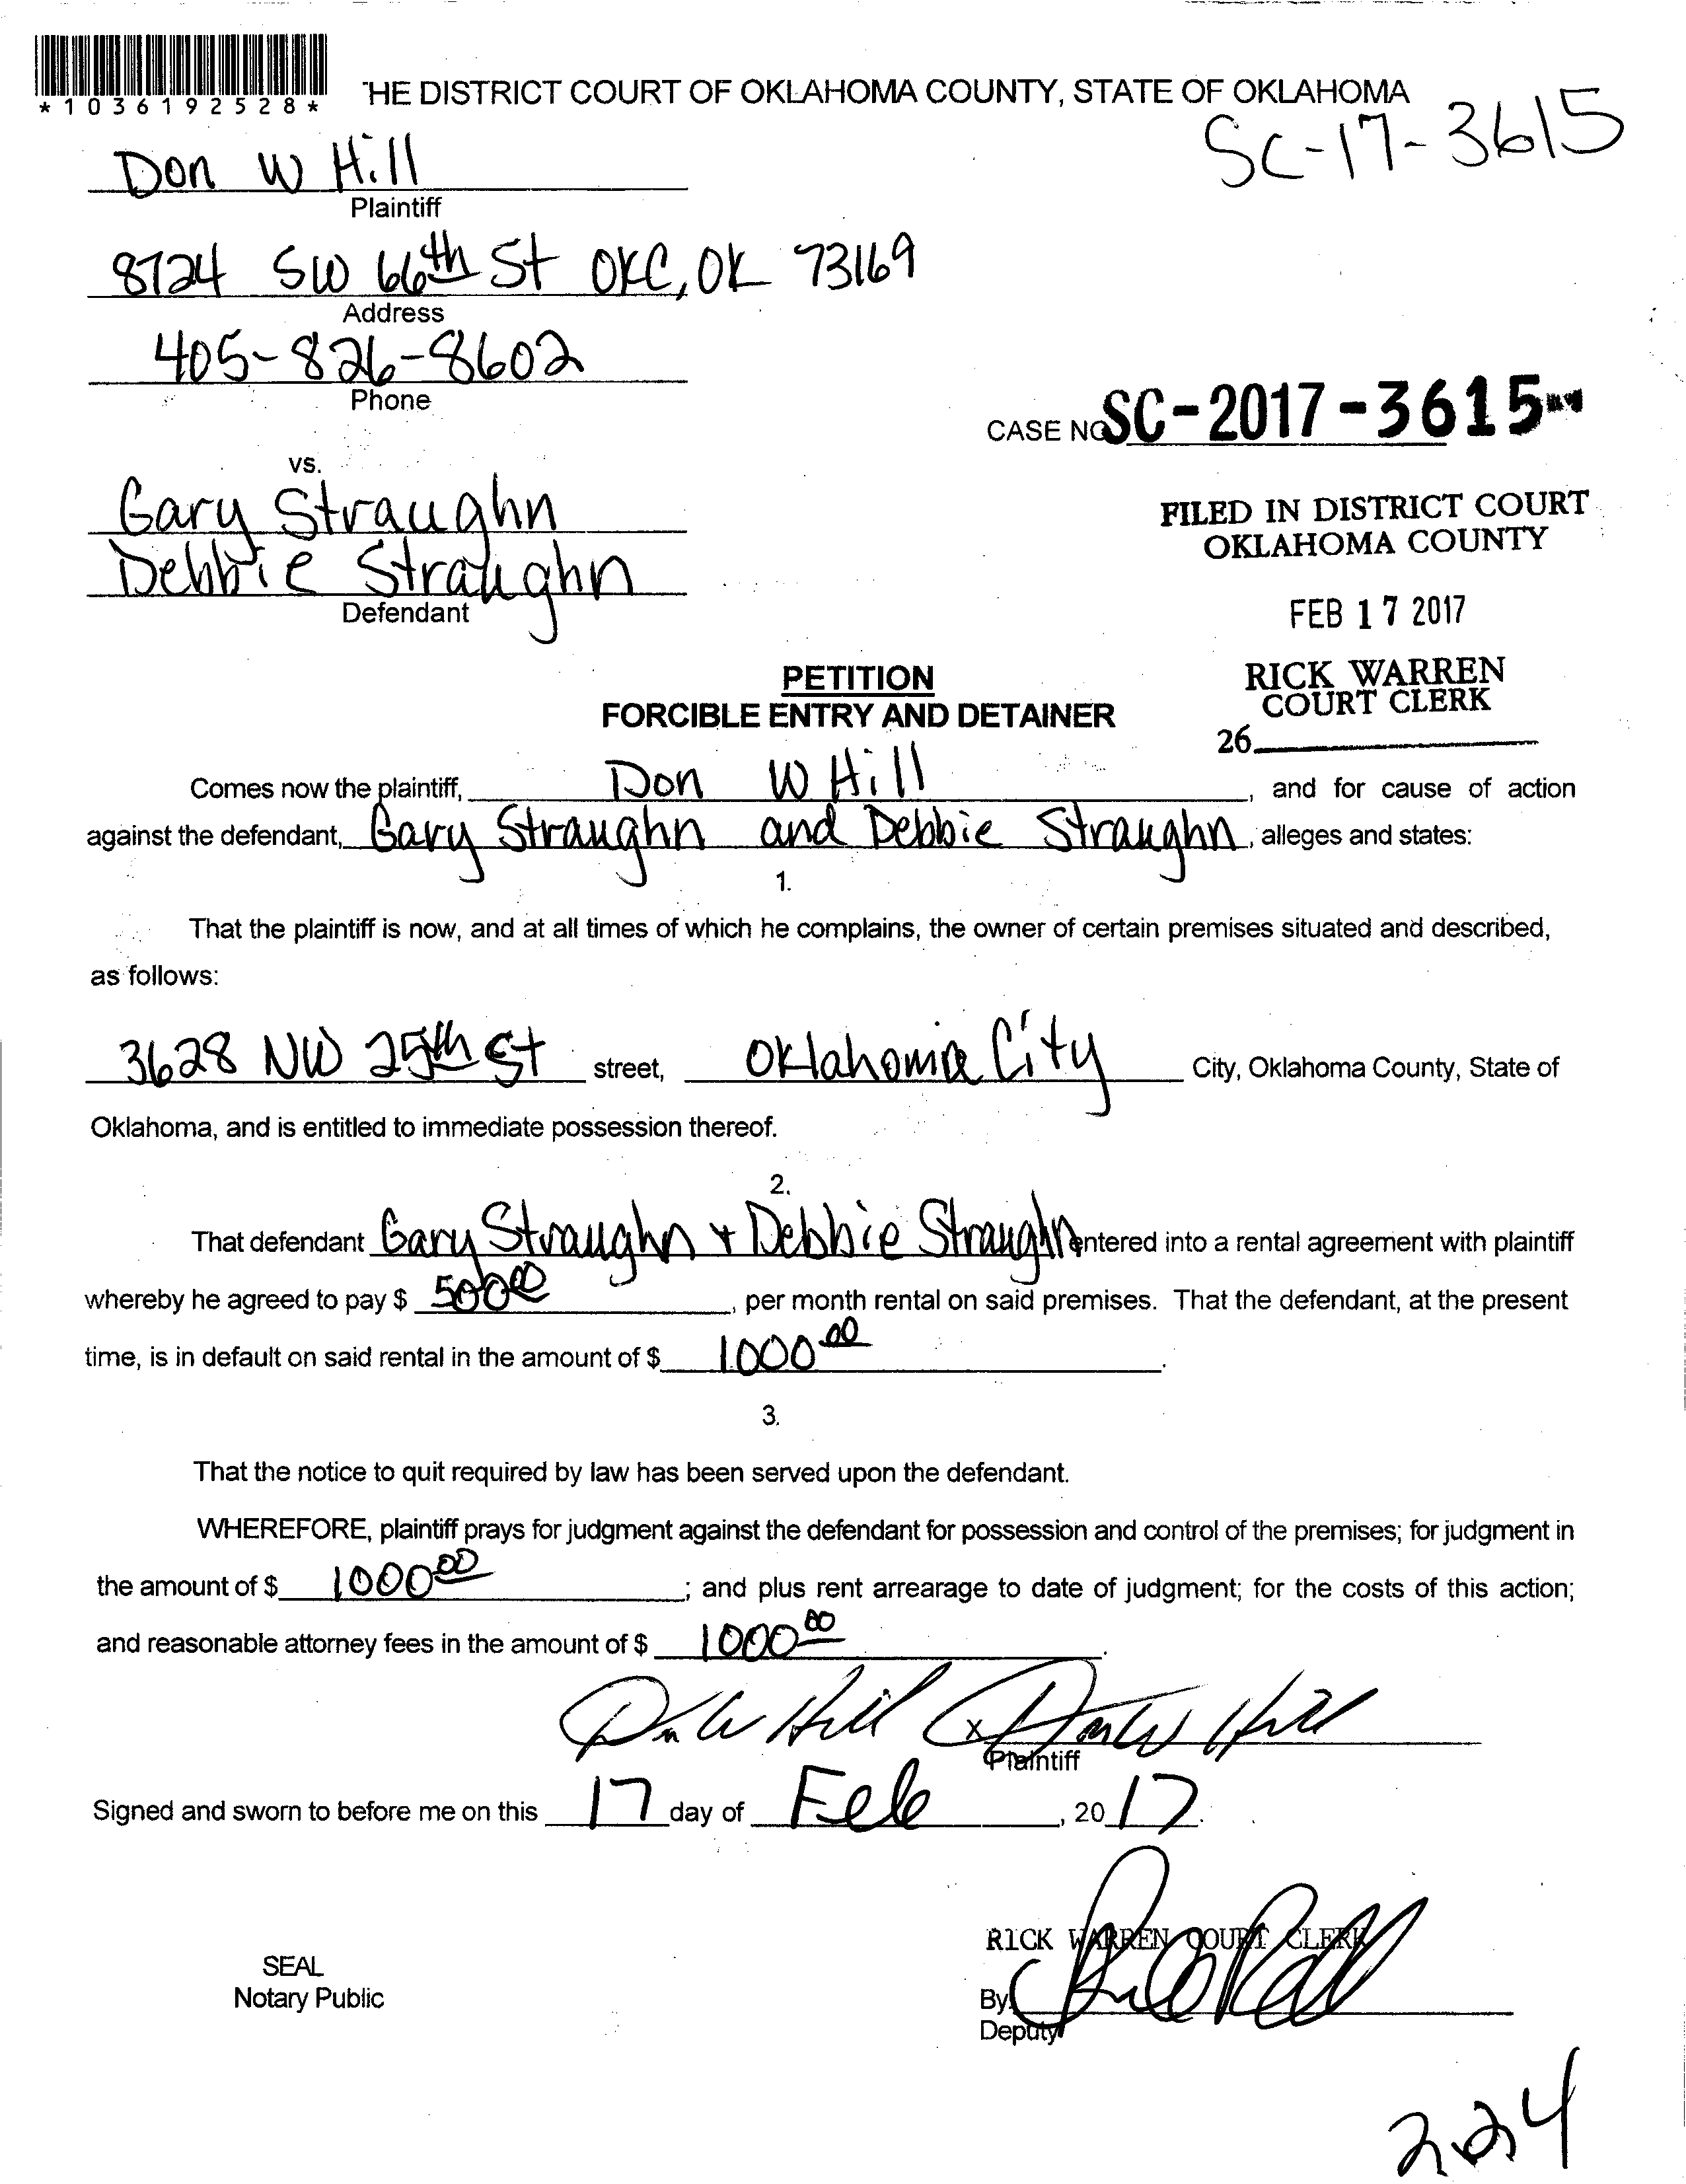 *1036192528*
HE DISTRICT COURT OF OKLAHOMA COUNTY, STATE OF OKLAHOMA
SC-17-3615
Don W Hill
Plaintiff
8724 SW 66th St OKC, OK 73169
Address
405-826-8602
Phone
CASE NO SC-2017-3615
vs.
Gary Straughn
Debbie Straughn
Defendant
FILED IN DISTRICT COURT
OKLAHOMA COUNTY
FEB 17 2017
RICK WARREN
COURT CLERK
26
PETITION
FORCIBLE ENTRY AND DETAINER
Comes now the plaintiff, Don W Hill, and for cause of action
against the defendant, Gary Straughn and Debbie Straughn, alleges and states:
1.
That the plaintiff is now, and at all times of which he complains, the owner of certain premises situated and described,
as follows:
3628 NW 25th St street, Oklahoma City City, Oklahoma County, State of
Oklahoma, and is entitled to immediate possession thereof.
2.
That defendant Gary Straughn + Debbie Straughn entered into a rental agreement with plaintiff
whereby he agreed to pay $ 500.00, per month rental on said premises. That the defendant, at the present
time, is in default on said rental in the amount of $ 1000.00.
3.
That the notice to quit required by law has been served upon the defendant.
WHEREFORE, plaintiff prays for judgment against the defendant for possession and control of the premises; for judgment in
the amount of $ 1000.00; and plus rent arrearage to date of judgment; for the costs of this action;
and reasonable attorney fees in the amount of $ 1000.00.
Don W Hill x Don W Hill
Plaintiff
Signed and sworn to before me on this 17 day of Feb, 2017.
RICK WARREN COURT CLERK
SEAL
Notary Public
By
Deputy
224